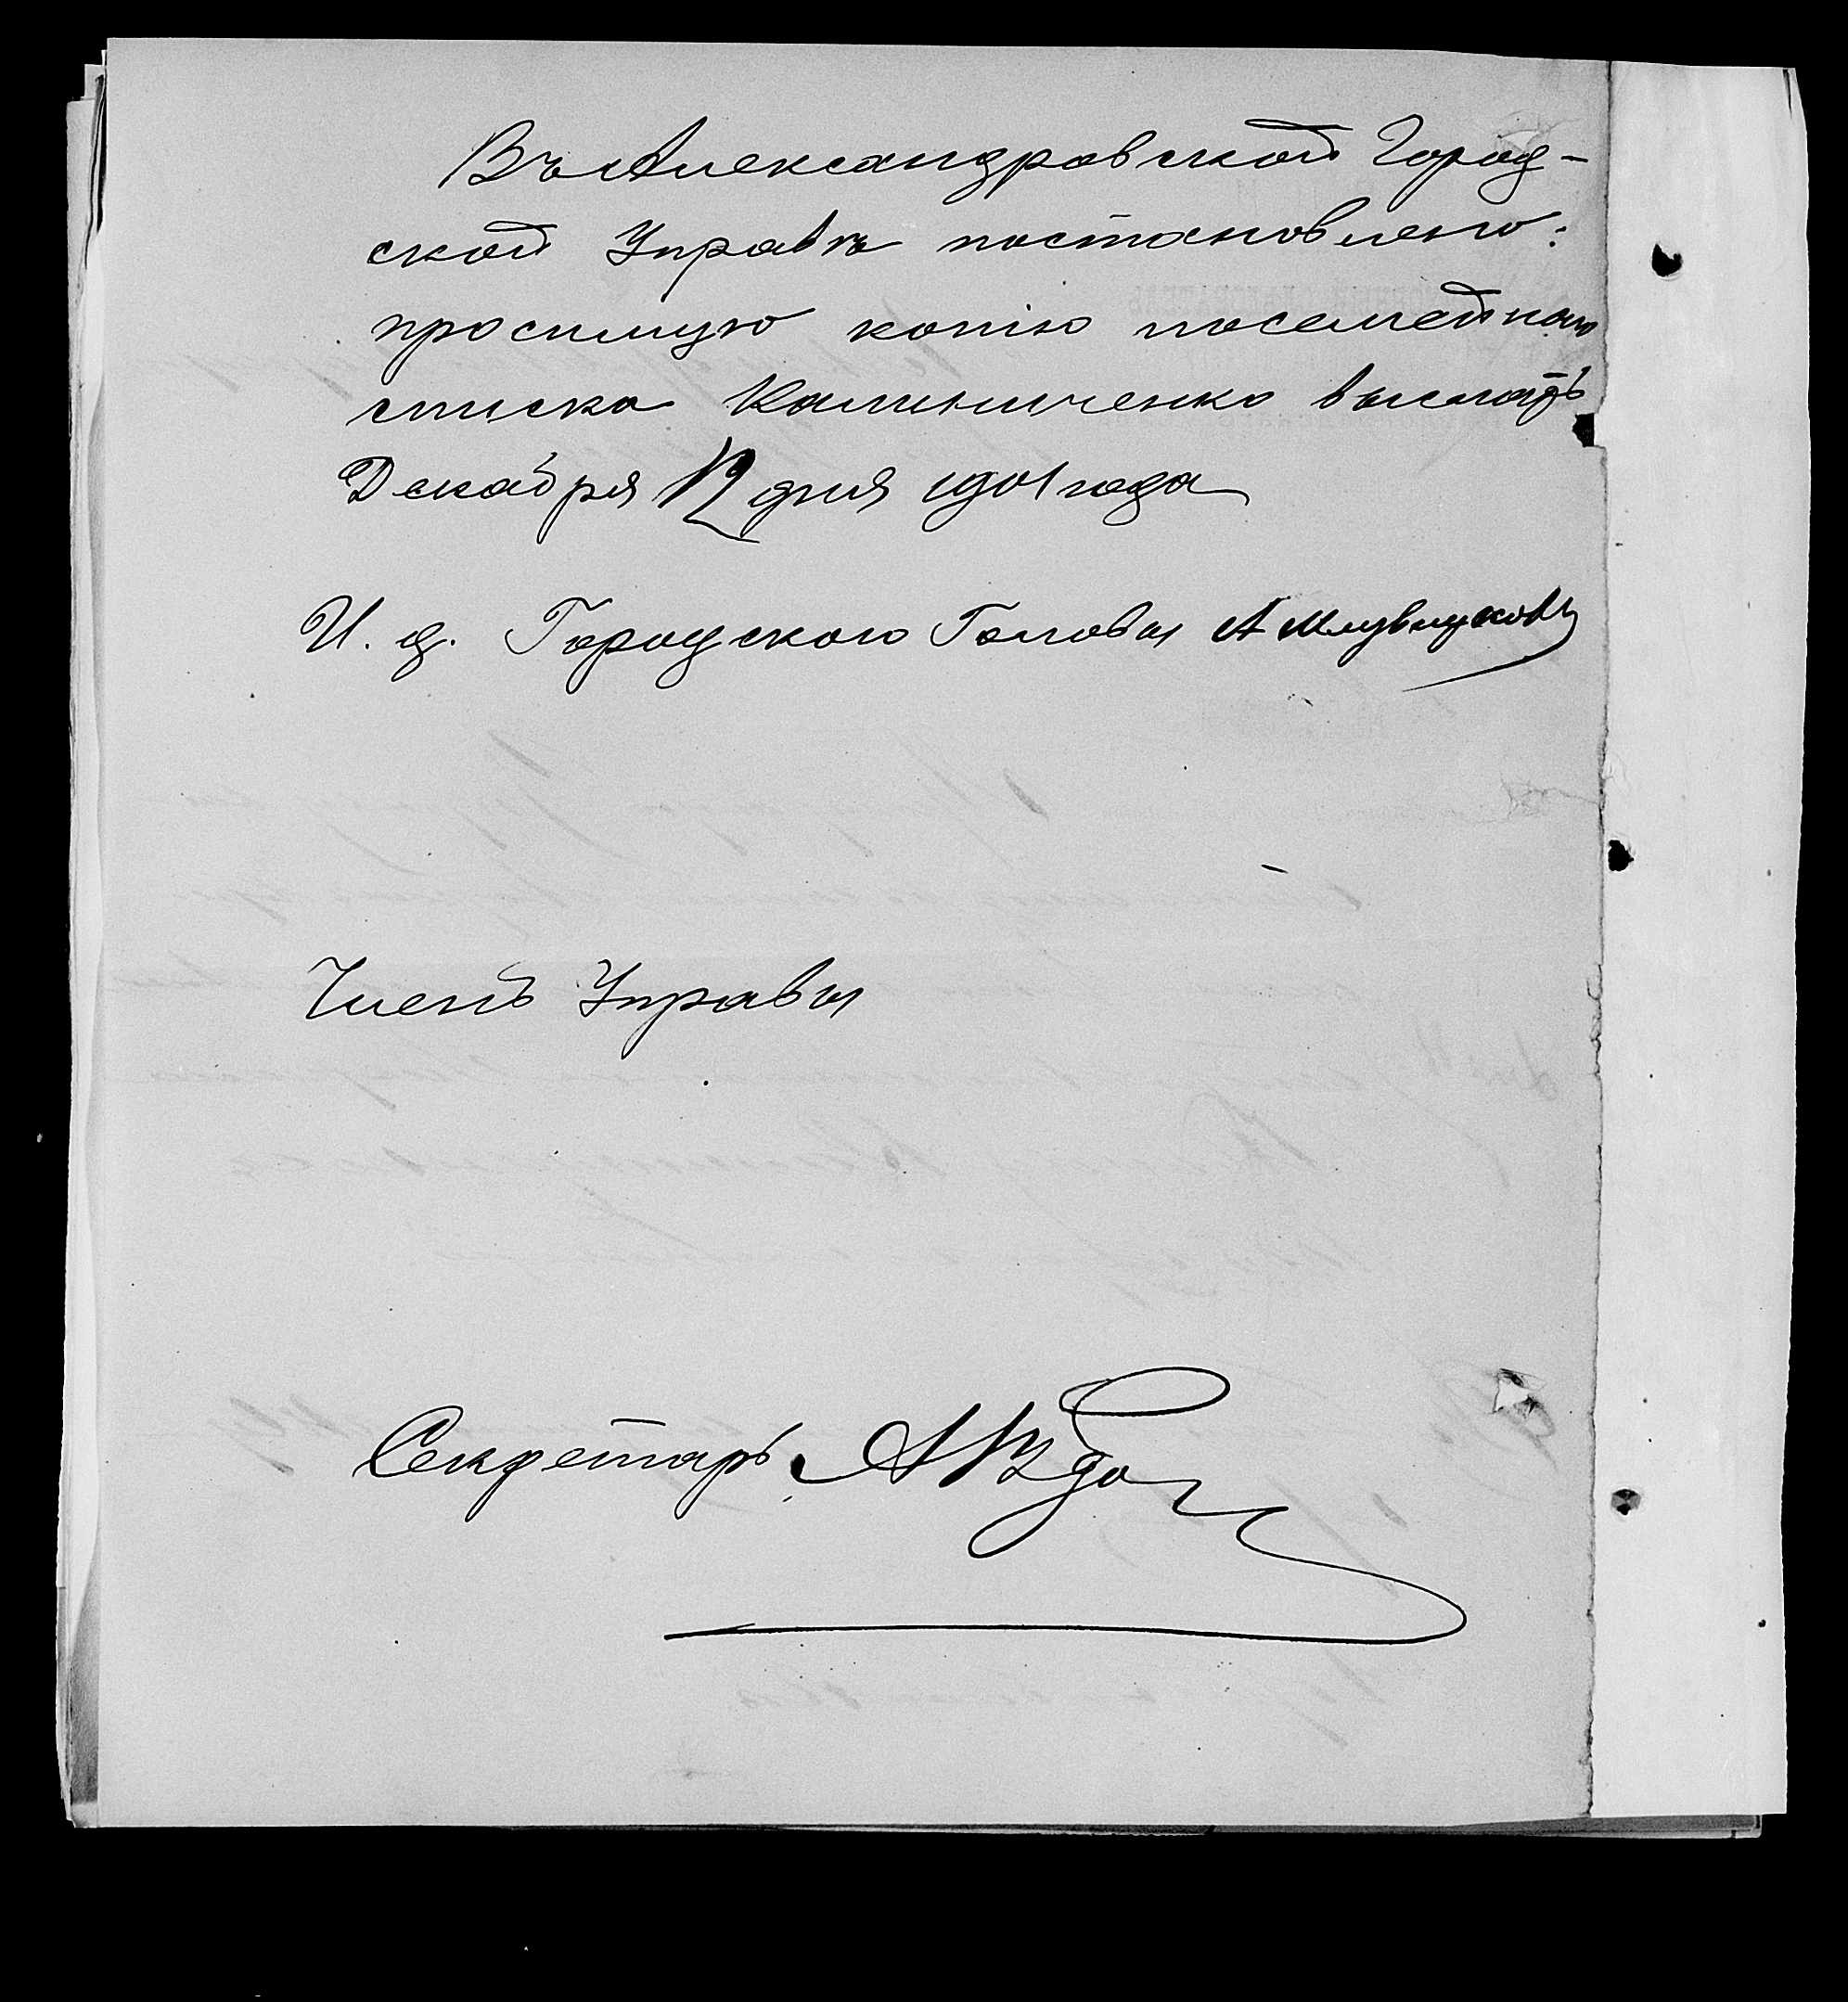 Въ Александровской Город-
ской Управѣ постановлено:
просимую копію посемейнаго
списка Калиниченко выслать
Декабря 12 дня 1901 года
И. д. Городского Головы А
Членъ Управы
Секретарь